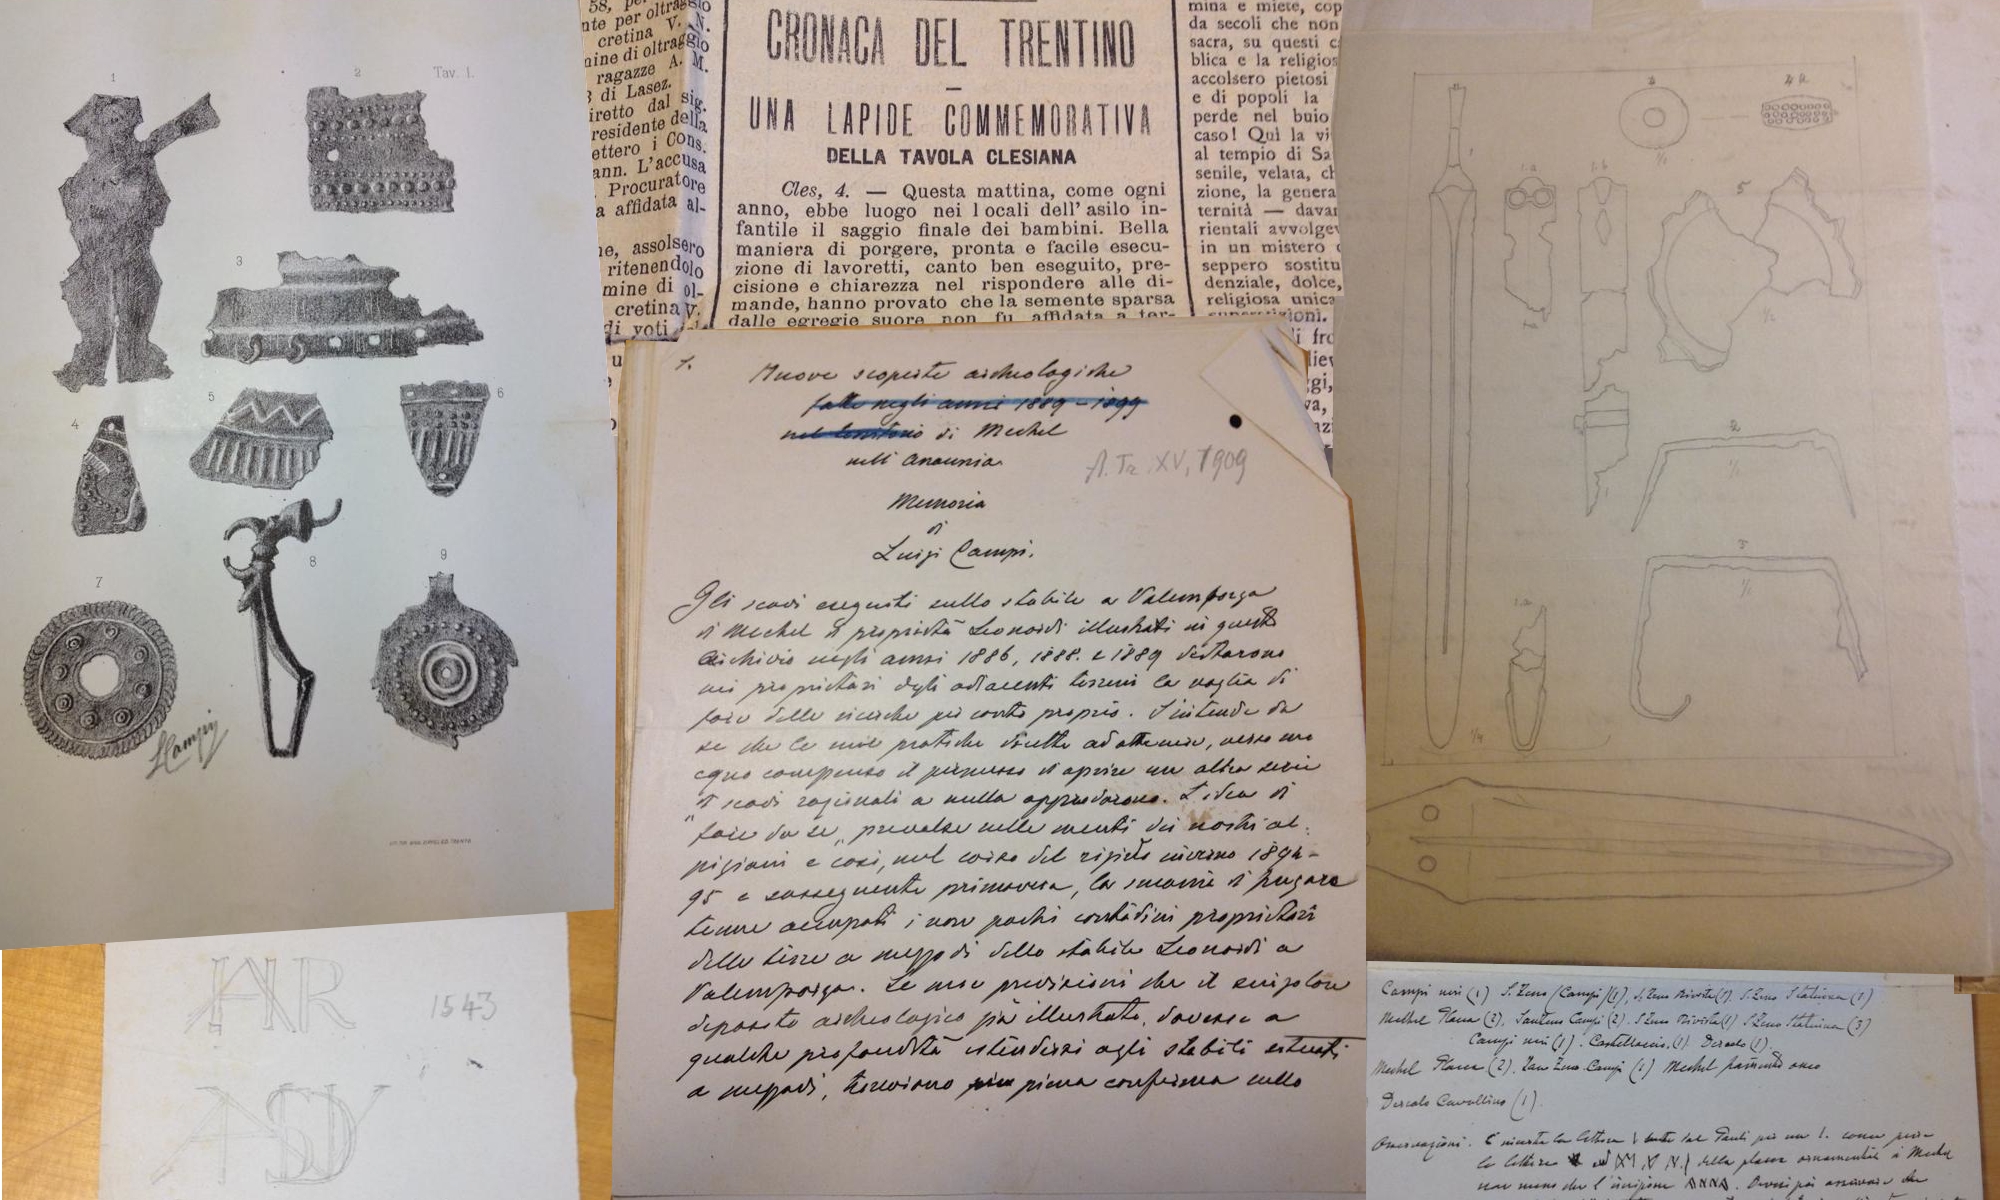 Tav. I.
1
2
3
4
5
6
7
8
9
LCampi
HR
1543
ASDV
58, pe
nte per oltraggio
cretina V. N.
mine di oltraggio
ragazze A. M.
3 di Lasez.
iretto dal sig.
residente della
ettero i Cons.
ann. L'accusa
Procuratore
a affidata al-
ne, assolsero
ritenendolo
mine di ol-
cretina V.
di voti
CRONACA DEL TRENTINO
UNA LAPIDE COMMEMORATIVA
DELLA TAVOLA CLESIANA
Cles, 4. — Questa mattina, come ogni
anno, ebbe luogo nei locali dell'asilo in-
fantile il saggio finale dei bambini. Bella
maniera di porgere, pronta e facile esecu-
zione di lavoretti, canto ben eseguito, pre-
cisione e chiarezza nel rispondere alle di-
mande, hanno provato che la semente sparsa
dalle egregie suore non fu affidata a ter-
mina e miete, cop
da secoli che non
sacra, su questi c
blica e la religios
accolsero pietosi
e di popoli la
perde nel buio
caso! Qui la vi
al tempio di Sa
senile, velata, ch
zione, la genera
ternità — davan
rientali avvolgev
in un mistero
seppero sostitu
denziale, dolce,
religiosa unica
superstizioni.
1.
Nuove scoperte archeologiche
fatte negli anni 1889-1899
nel territorio di Mechel
nell'Anaunia
A. Tr. XV, 1909
Memoria
di
Luigi Campi.
Gli scavi eseguiti sullo stabile a Valemporga
di Mechel di proprietà Leonardi illustrati in questo
Archivio negli anni 1886, 1888. e 1889 destarono
nei proprietari degli adiacenti terreni la voglia di
fare delle ricerche per conto proprio. S'intende da
se che le mie pratiche dirette ad ottenere, verso un
equo compenso il permesso di aprire un altra serie
di scavi razionali a nulla approdarono. L'idea di
"fare da se" prevalse nelle menti dei nostri al-
pigiani e così, nel corso del rigido inverno 1894-
95 e susseguente primavera, la smania di frugare
tenne occupati i non pochi contadini proprietari
delle terre a mezzodì dello stabile Leonardi a
Valemporga. Le mie previsioni che il singolare
deposito archeologico già illustrato, dovesse a
qualche profondità estendersi agli stabili situati
a mezzodì, trovarono piena conferma nello
1
1.a
1.b
5
2
1/1
3
1/1
1/4
Campi neri (1) S. Zeno (Campi)(1), S. Zeno Rivista(1). S. Zeno Statuina (3)
Mechel Placca (2). Sanzeno Campi (2). S Zeno Rivista(1) S Zeno Statuina (3)
Campi neri (1). Castellaccio (1). Dercolo (1).
Mechel Placca (2). San Zeno Campi (1) Mechel
Dercolo Cavallino (1).
Osservazioni. E incerta la lettera
la lettera della placca ornamentale di Mechel
non meno che l'iscrizione ANNA.